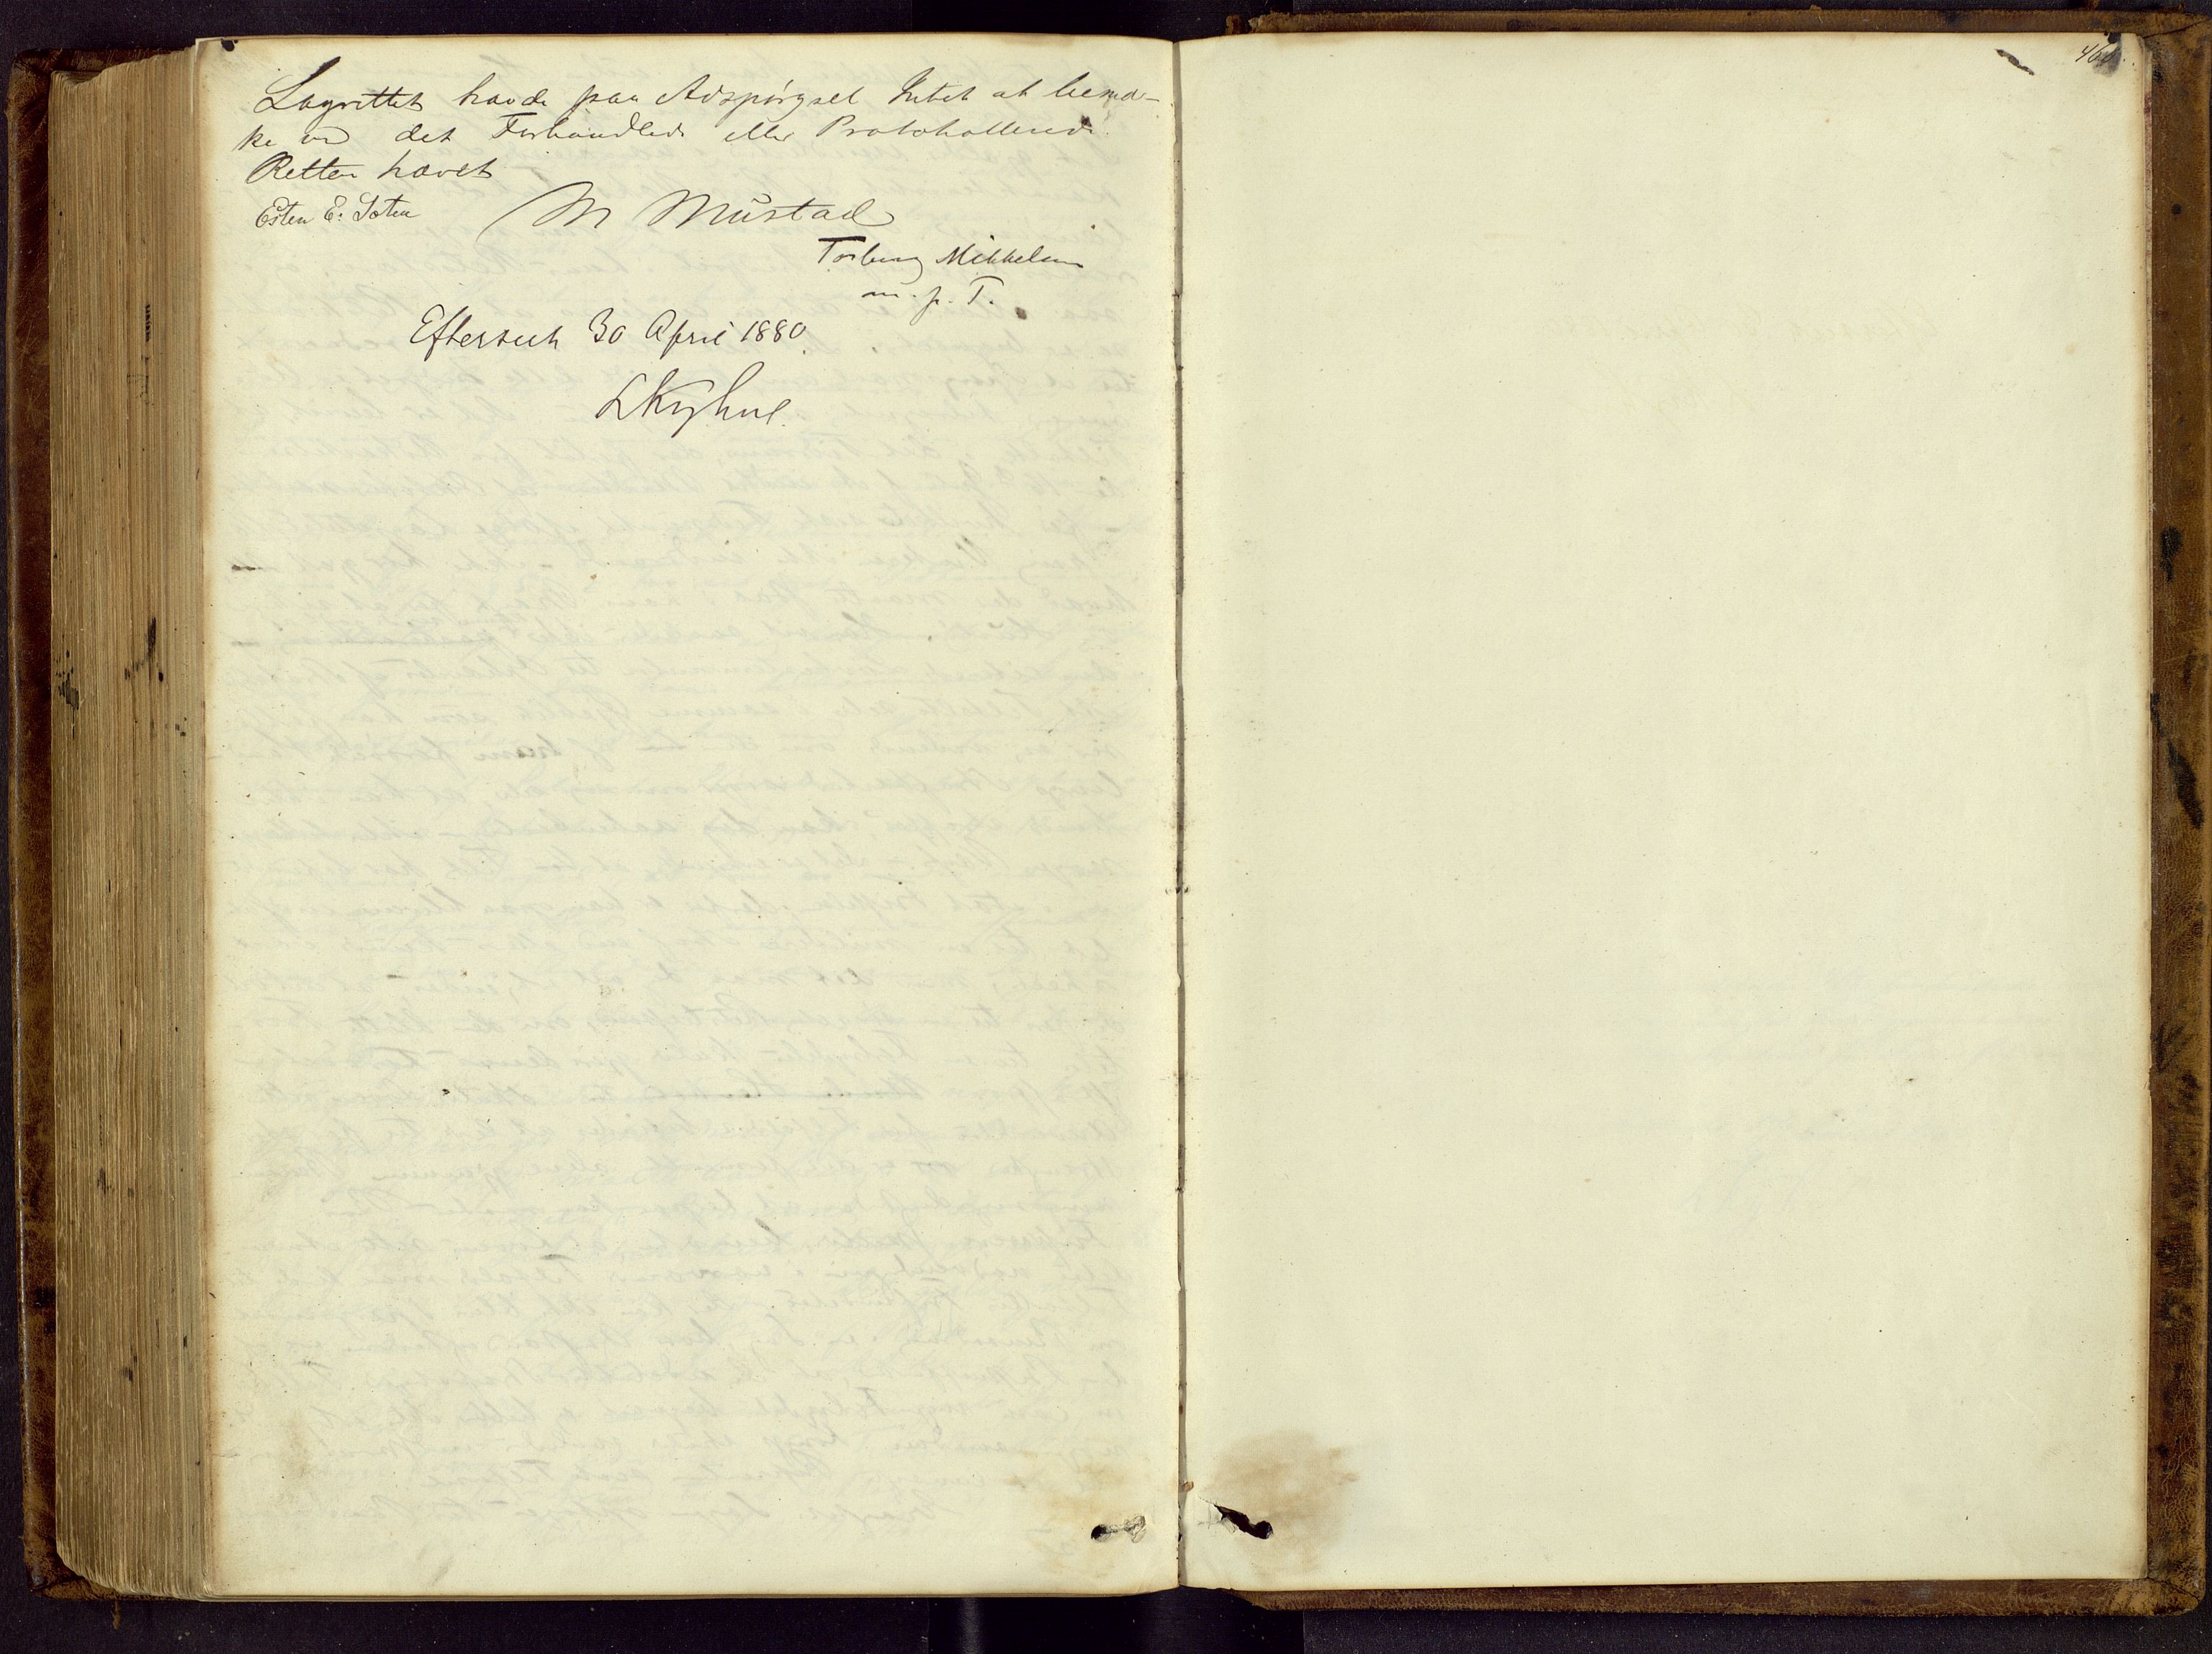 Lagrettet havde paa Adspørgsel Intet at bemær-
ke ved det Forhandlede eller Protokollerede.
Retten hævet
Esten E: Soten M Mustad
Torberg Mikkelsen
m. p. T.
Efterseet 30 April 1880.
LKyhul.